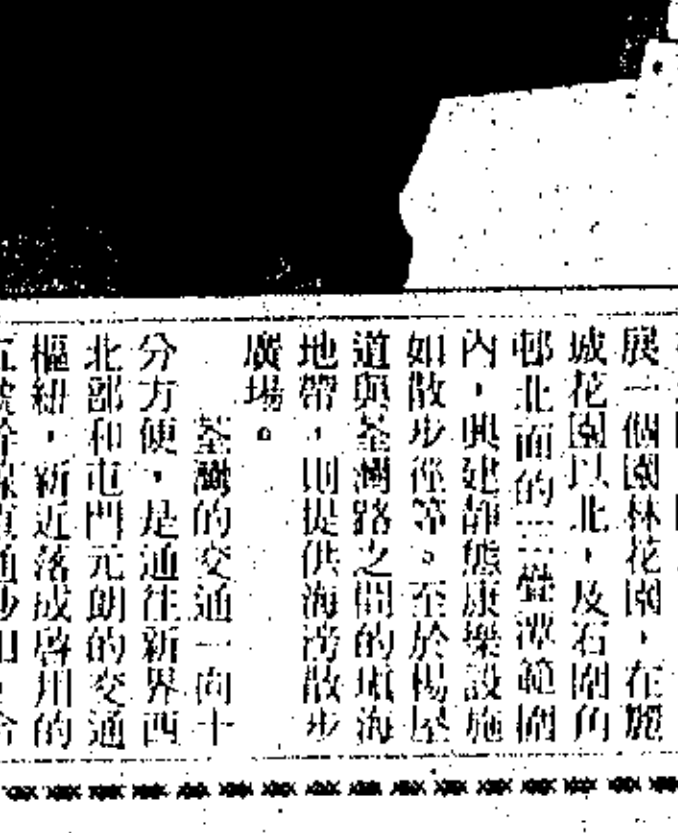 展一個園林花園，在麗
城花園以北，及石圍角
邨北面的三疊潭範圍
內，興建靜態康樂設施
如散步徑等。至於楊屋
道與荃灣路之間的填海
地帶，則提供海旁散步
廣場。
荃灣的交通一向十
分方便，是通往新界西
北部和屯門元朗的交通
樞紐，新近落成啓用的